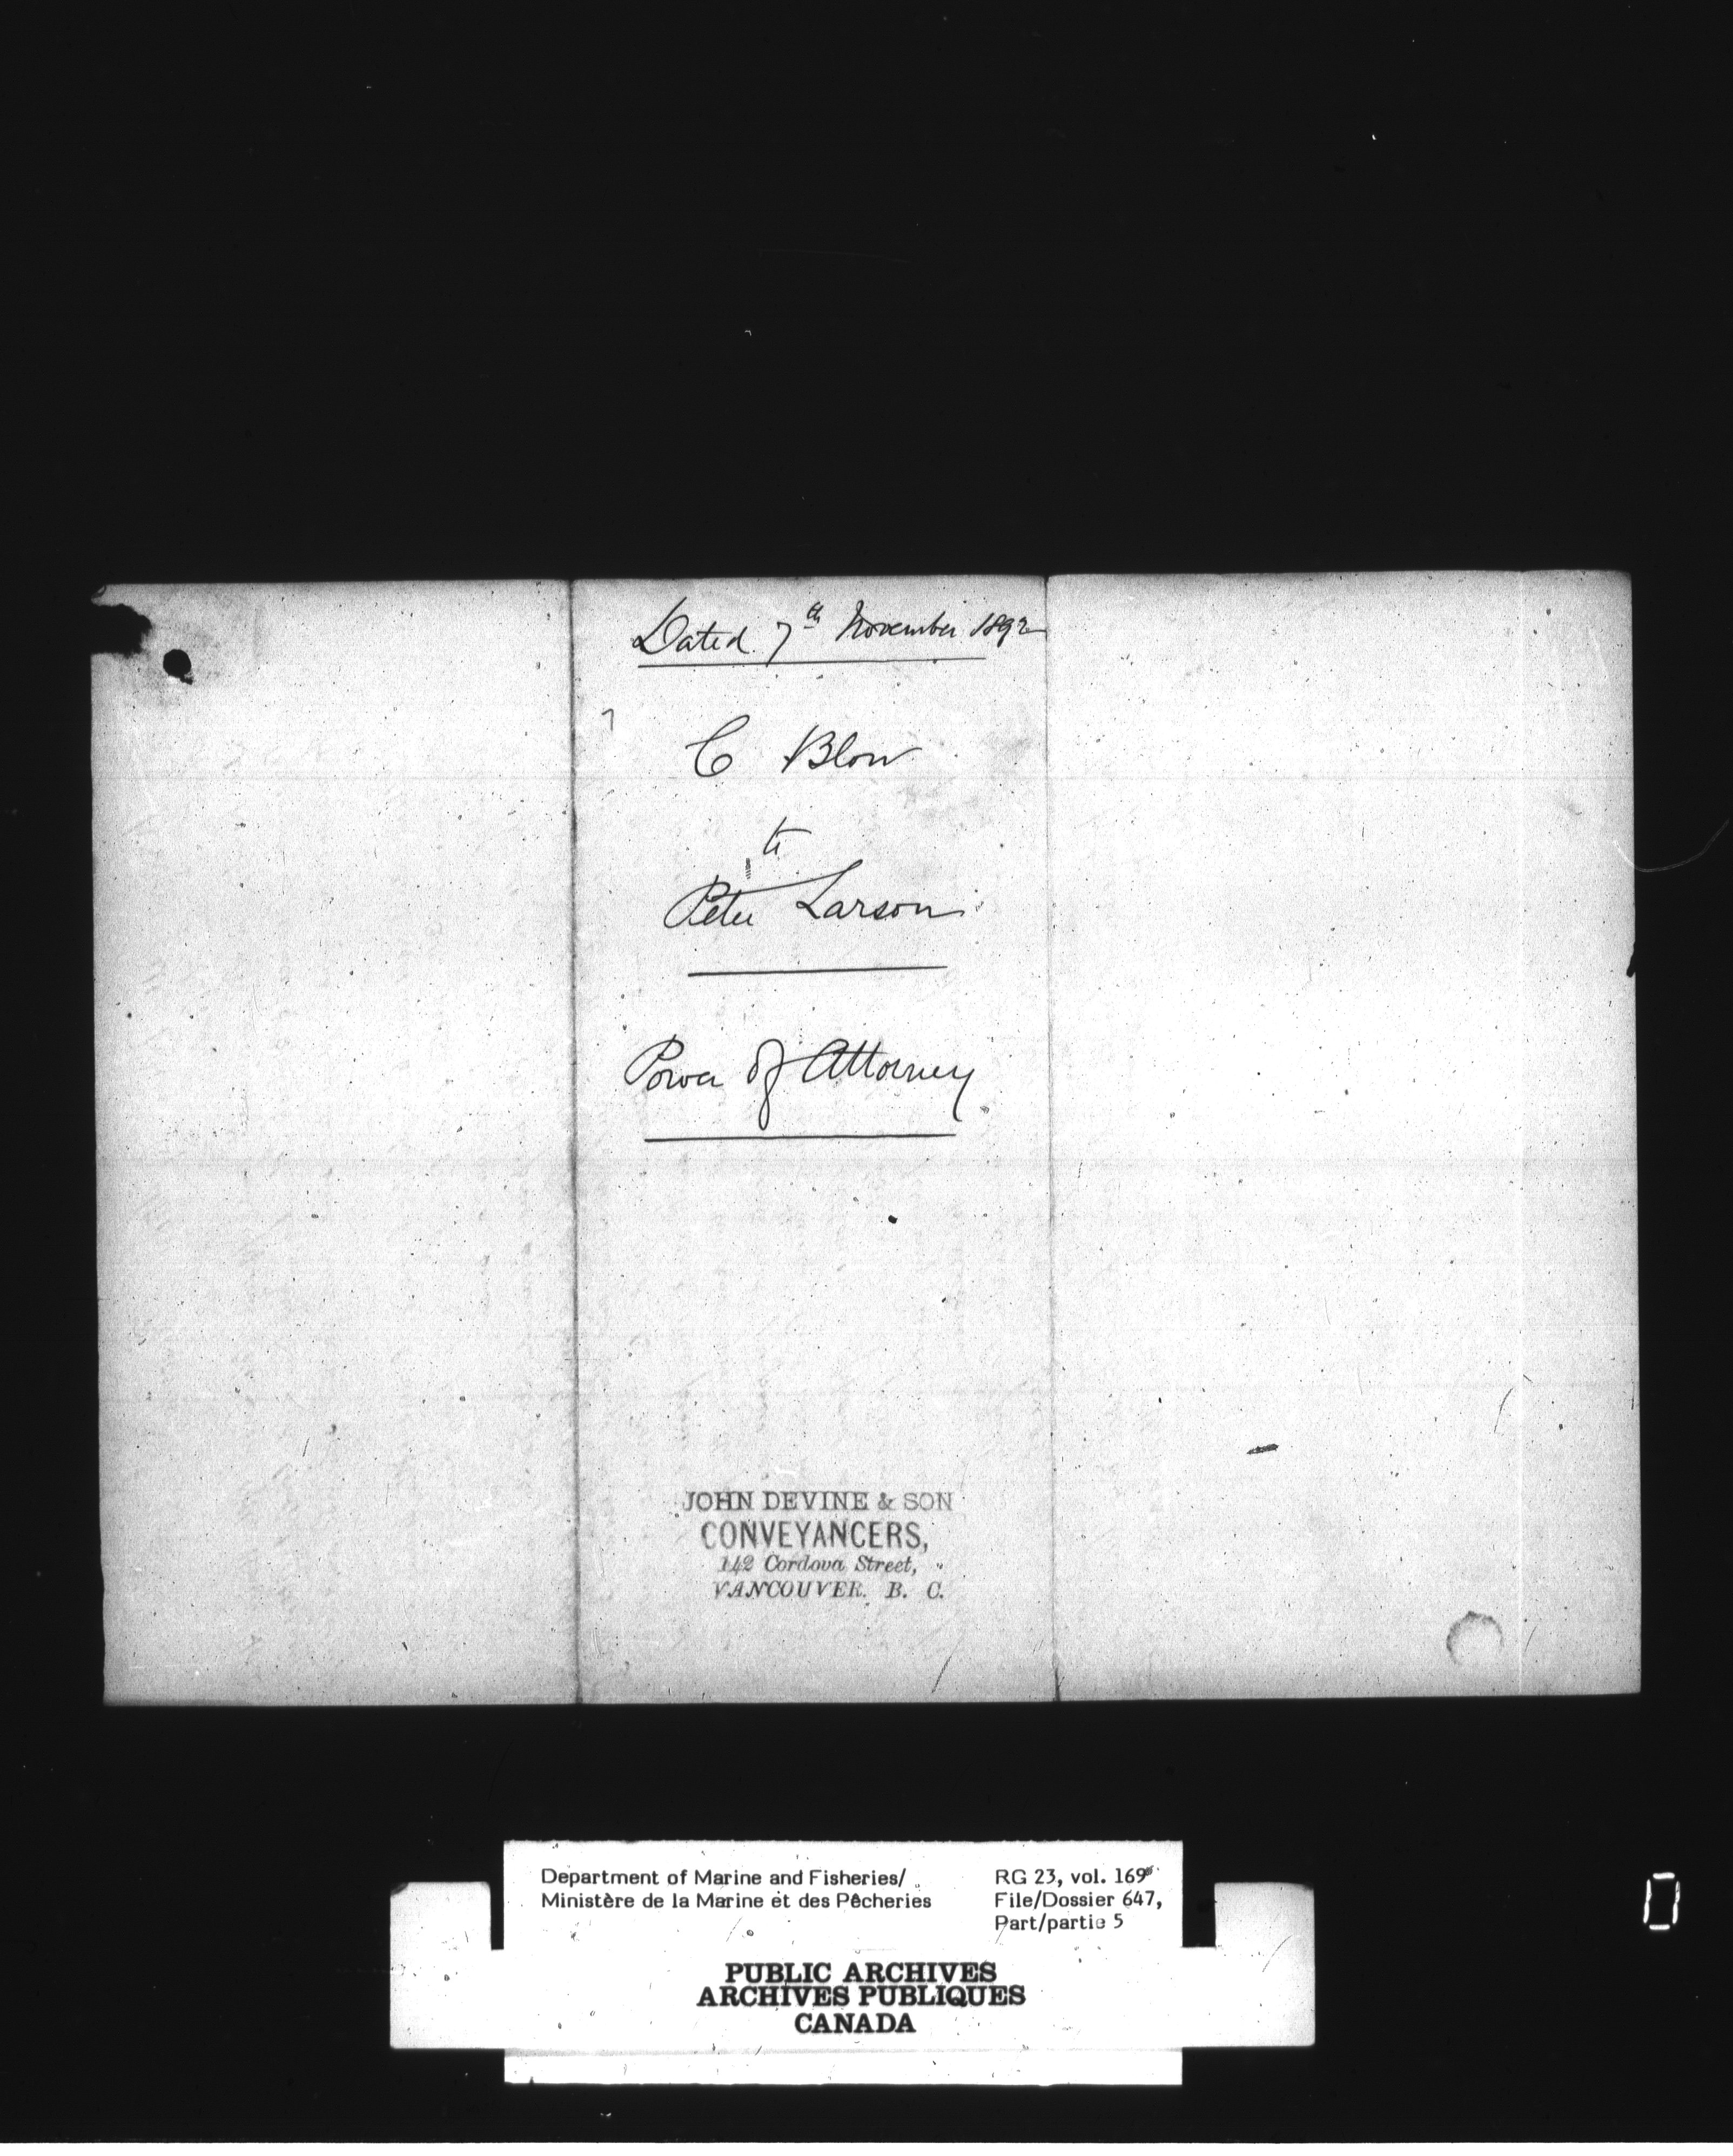 Dated 7th November 1892
C Blow
to
Peter Larson
Power of Attorney
JOHN DEVINE & SON
CONVEYANCERS,
142 Cordova Street,
VANCOUVER. B. C.
Department of Marine and Fisheries/
Ministère de la Marine et des Pêcheries
RG 23, vol. 169
File/Dossier 647,
Part/partie 5
PUBLIC ARCHIVES
ARCHIVES PUBLIQUES
CANADA